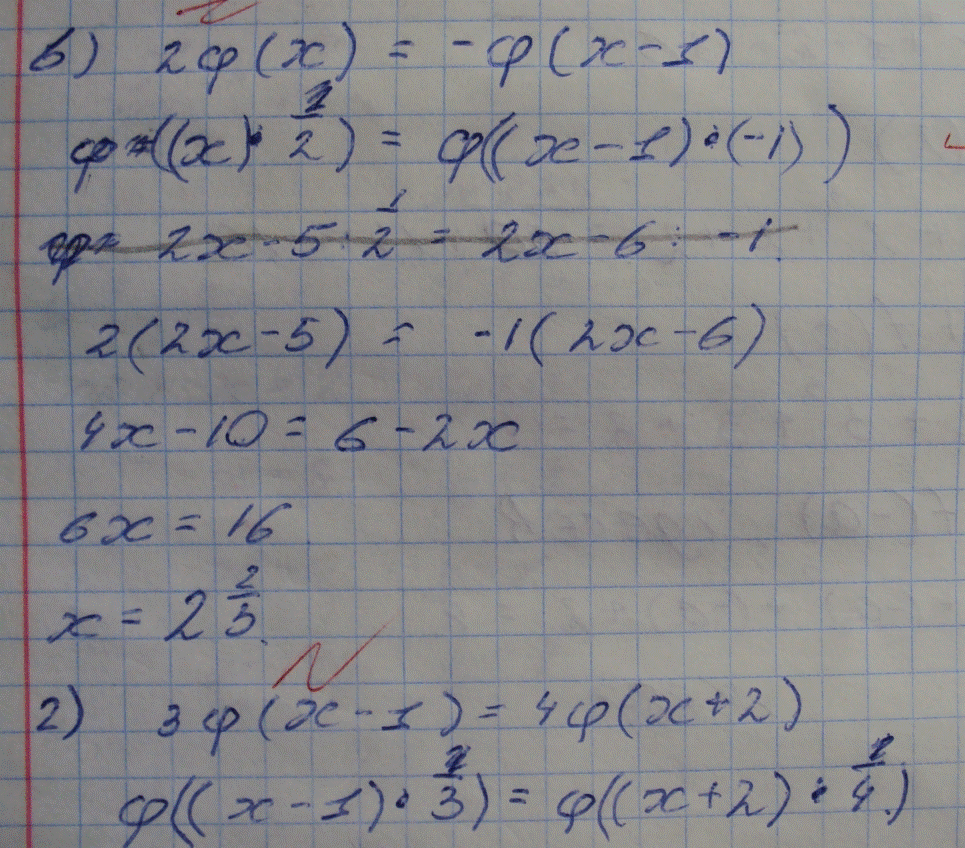 в) 2φ(x) = -φ(x-1)
φ((x)·1/2) = φ((x-1)·(-1))
2x-5·1/2 = 2x-6 : -1
2(2x-5) = -1(2x-6)
4x-10 = 6-2x
6x = 16
x = 2 2/3.
г) 3φ(x-1) = 4φ(x+2)
φ((x-1)·1/3) = φ((x+2)·1/4)